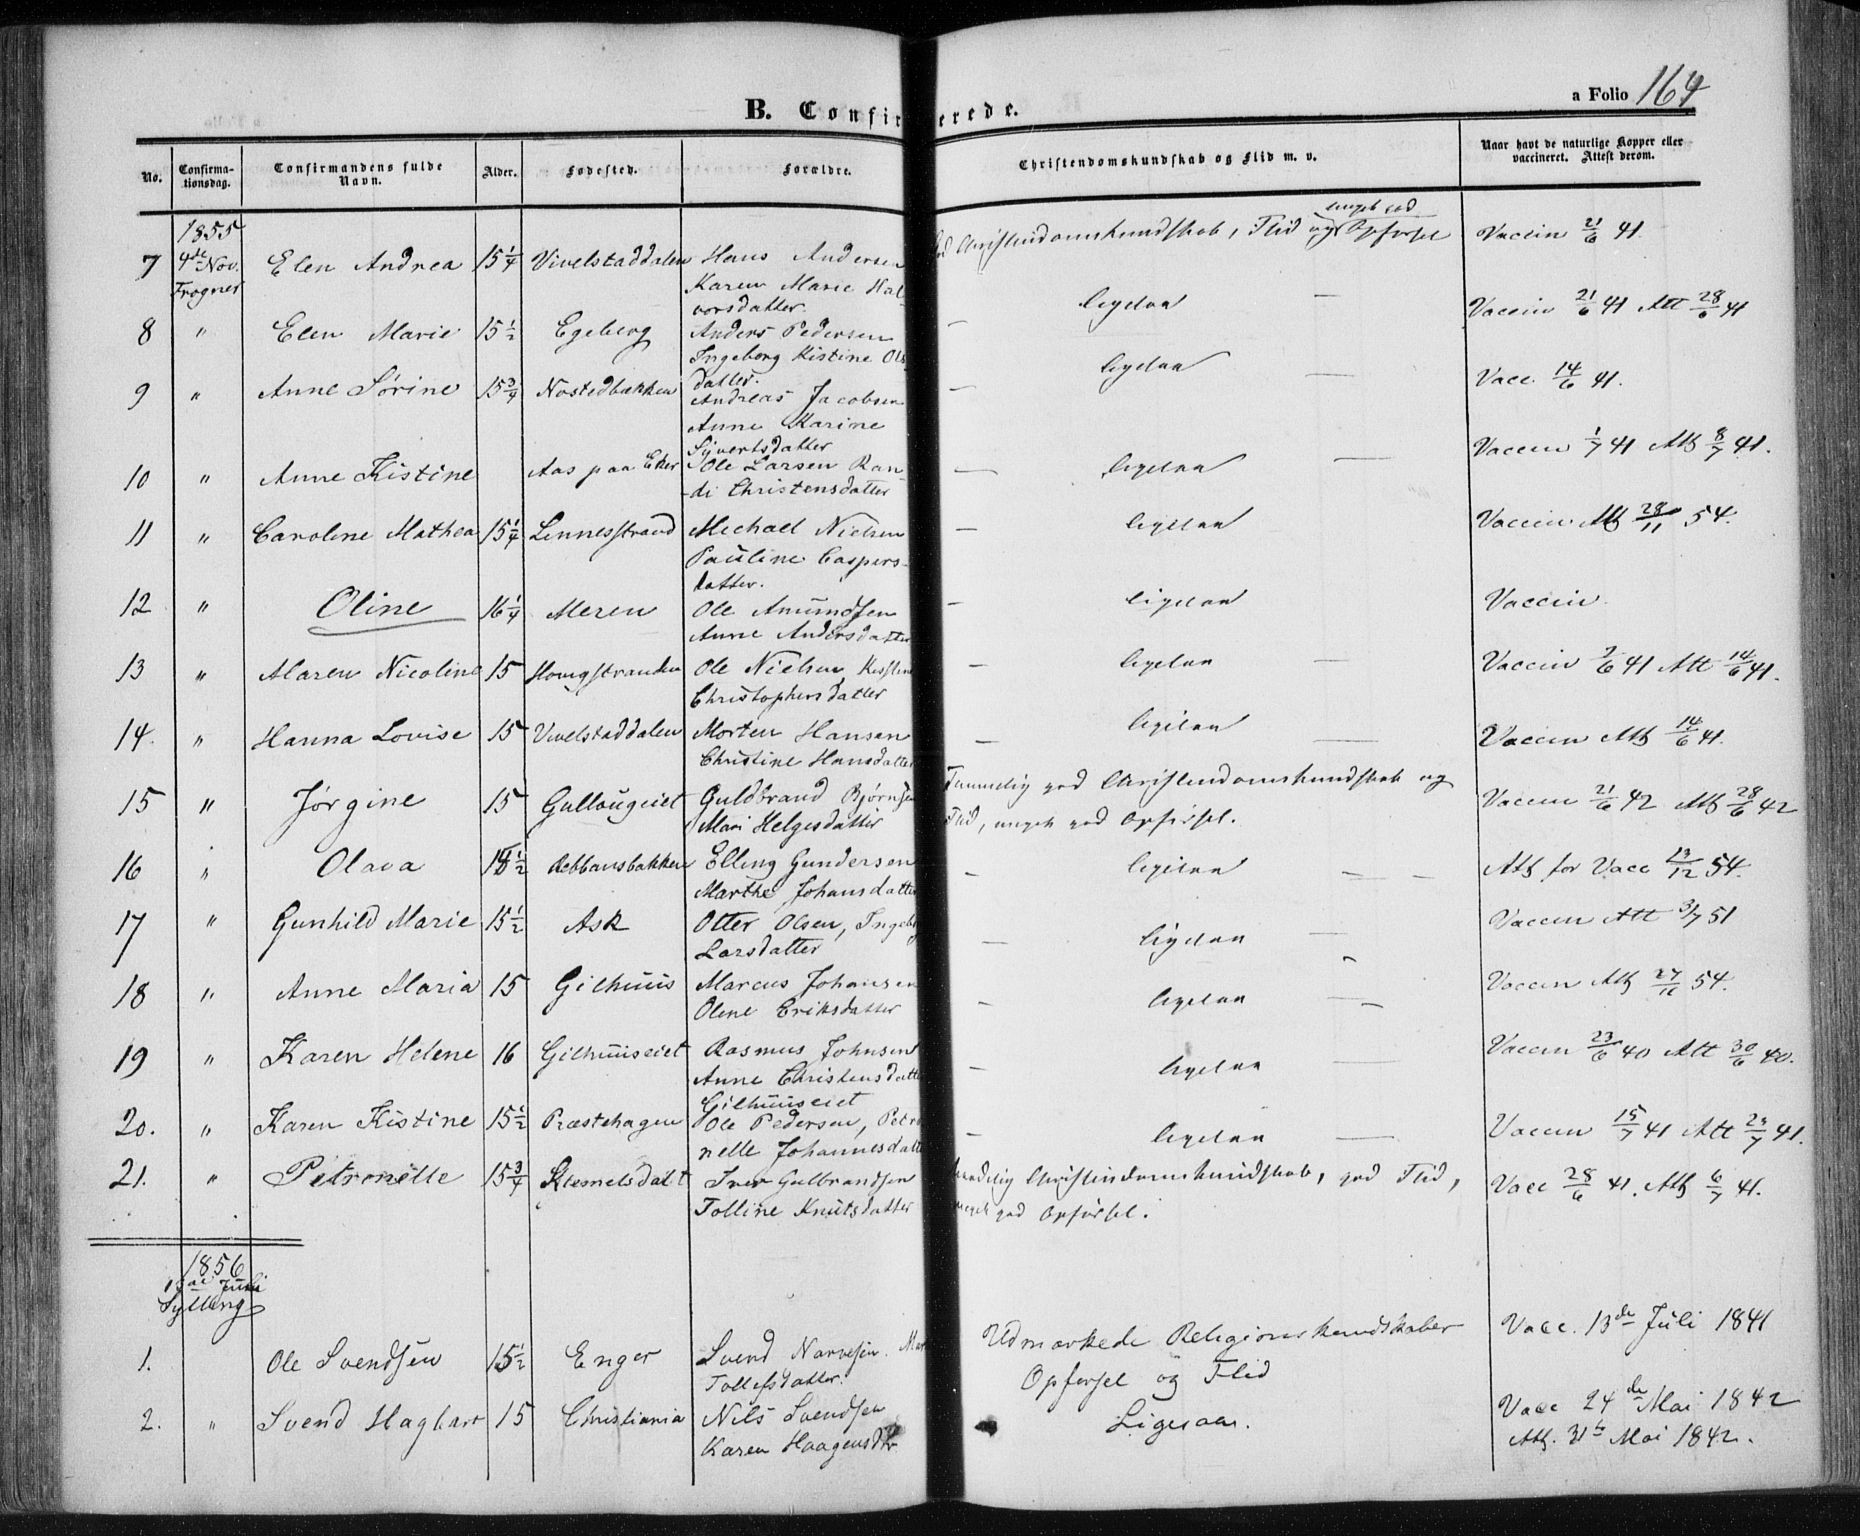 B. Confirmerede.
a Folio 164
No. Confirmationsdag. Confirmandens fulde Navn. Alder. Fødested. Forældre. Christendomskundskab og Flid m. v. Naar havt de naturlige Kopper eller vaccineret. Attest derom.
1855
7 4de Nov. Frogner Elen Andrea 15 1/4 Vivelstaddalen Hans Andersen Christendomskundskab, Flid og meget god Opførsel Vaccin 21/6 41.
Karen Marie Hal-
vorsdatter.
8 " Elen Marie 15 1/2 Egeberg Anders Pedersen — ligelaa — Vaccin 21/6 41 Att 28/6 41
Ingeborg Kistine Ols
datter.
9 " Anne Sørine 15 3/4 Nøstedbakken Andreas Jacobsen — ligelaa — Vacc 14/6 41.
Anne Karine
Syvertsdatter
10 " Anne Kistine Aas paa Eker Ole Larsen Ran- — ligelaa — Vaccin 1/7 41 Att 8/7 41.
-di Christensdatter
11 " Caroline Mathea 15 1/4 Linnesstrand Michael Nielsen — ligelaa Vaccin Att 28/11 54.
Pauline Caspers-
datter.
12 " Oline 16 1/4 Meren Ole Amundsen — ligelaa Vaccin
Anne Andersdatter
13 " Maren Nicoline 15 Hougstranden Ole Nielsen, Kistine — ligelaa — Vaccin 7/6 41 Att 14/6 41.
Christophersdatter
14. " Hanna Lovise 15 Vivelstaddalen Morten Hansen — ligelaa — Vaccin Att 14/6 41.
Christine Hansdatter
15 " Jørgine 15 Gullaugeiet Guldbrand Bjørnsen Temmelig god Christendomskundskab og Vaccin 21/6 42 Att 28/6 42
Mari Helgesdatter Flid, meget god Opførsel.
16 " Olava 15 1/2 Rebbansbakken Elling Gundersen — ligelaa — — Att for Vacc 13/12 54.
Marthe Johansdatter
17 " Gunhild Marie 15 1/2 Ask Otter Olsen, Ingeb — ligelaa — Vaccin Att 3/7 51
Larsdatter
18 " Anne Maria 15 Gilhuus Marcus Johansen — ligelaa — Vaccin Att 54.
Olene Eriksdatter
19 " Karen Helene 16 Gilhuuseiet Rasmus Johnsen — ligelaa — Vaccin 23/6 40 Att 30/6 40.
Anne Christensdatter
Gilhuuseiet
20. " Karen Kistine 15 1/2 Præstehagen Ole Pedersen, Petro — ligelaa — Vaccin 15/7 41 Att 23/7 41.
nelle Johannesdatter
21. " Petronelle 15 3/4 Klemetsdalt Iver Gulbrandsen Christendomskundskab, god Flid, Vacc 28/6 41. Att 6/7 41.
Tolline Knutsdatter meget god Opførsel.
1856
Sylling
1. Ole Svendsen 15 1/2 Enger Svend Narvesen. Mar Udmærkede Religionskundskaber Vacc. 13de Juli 1841
Tollefsdatter. Opførsel og Flid
2. " Svend Haghart 15 Christiania Nils Svendsen Ligesaa. Vacc 24de Mai 1842
Karen Haagensdtr Att. 31te Mai 1842.